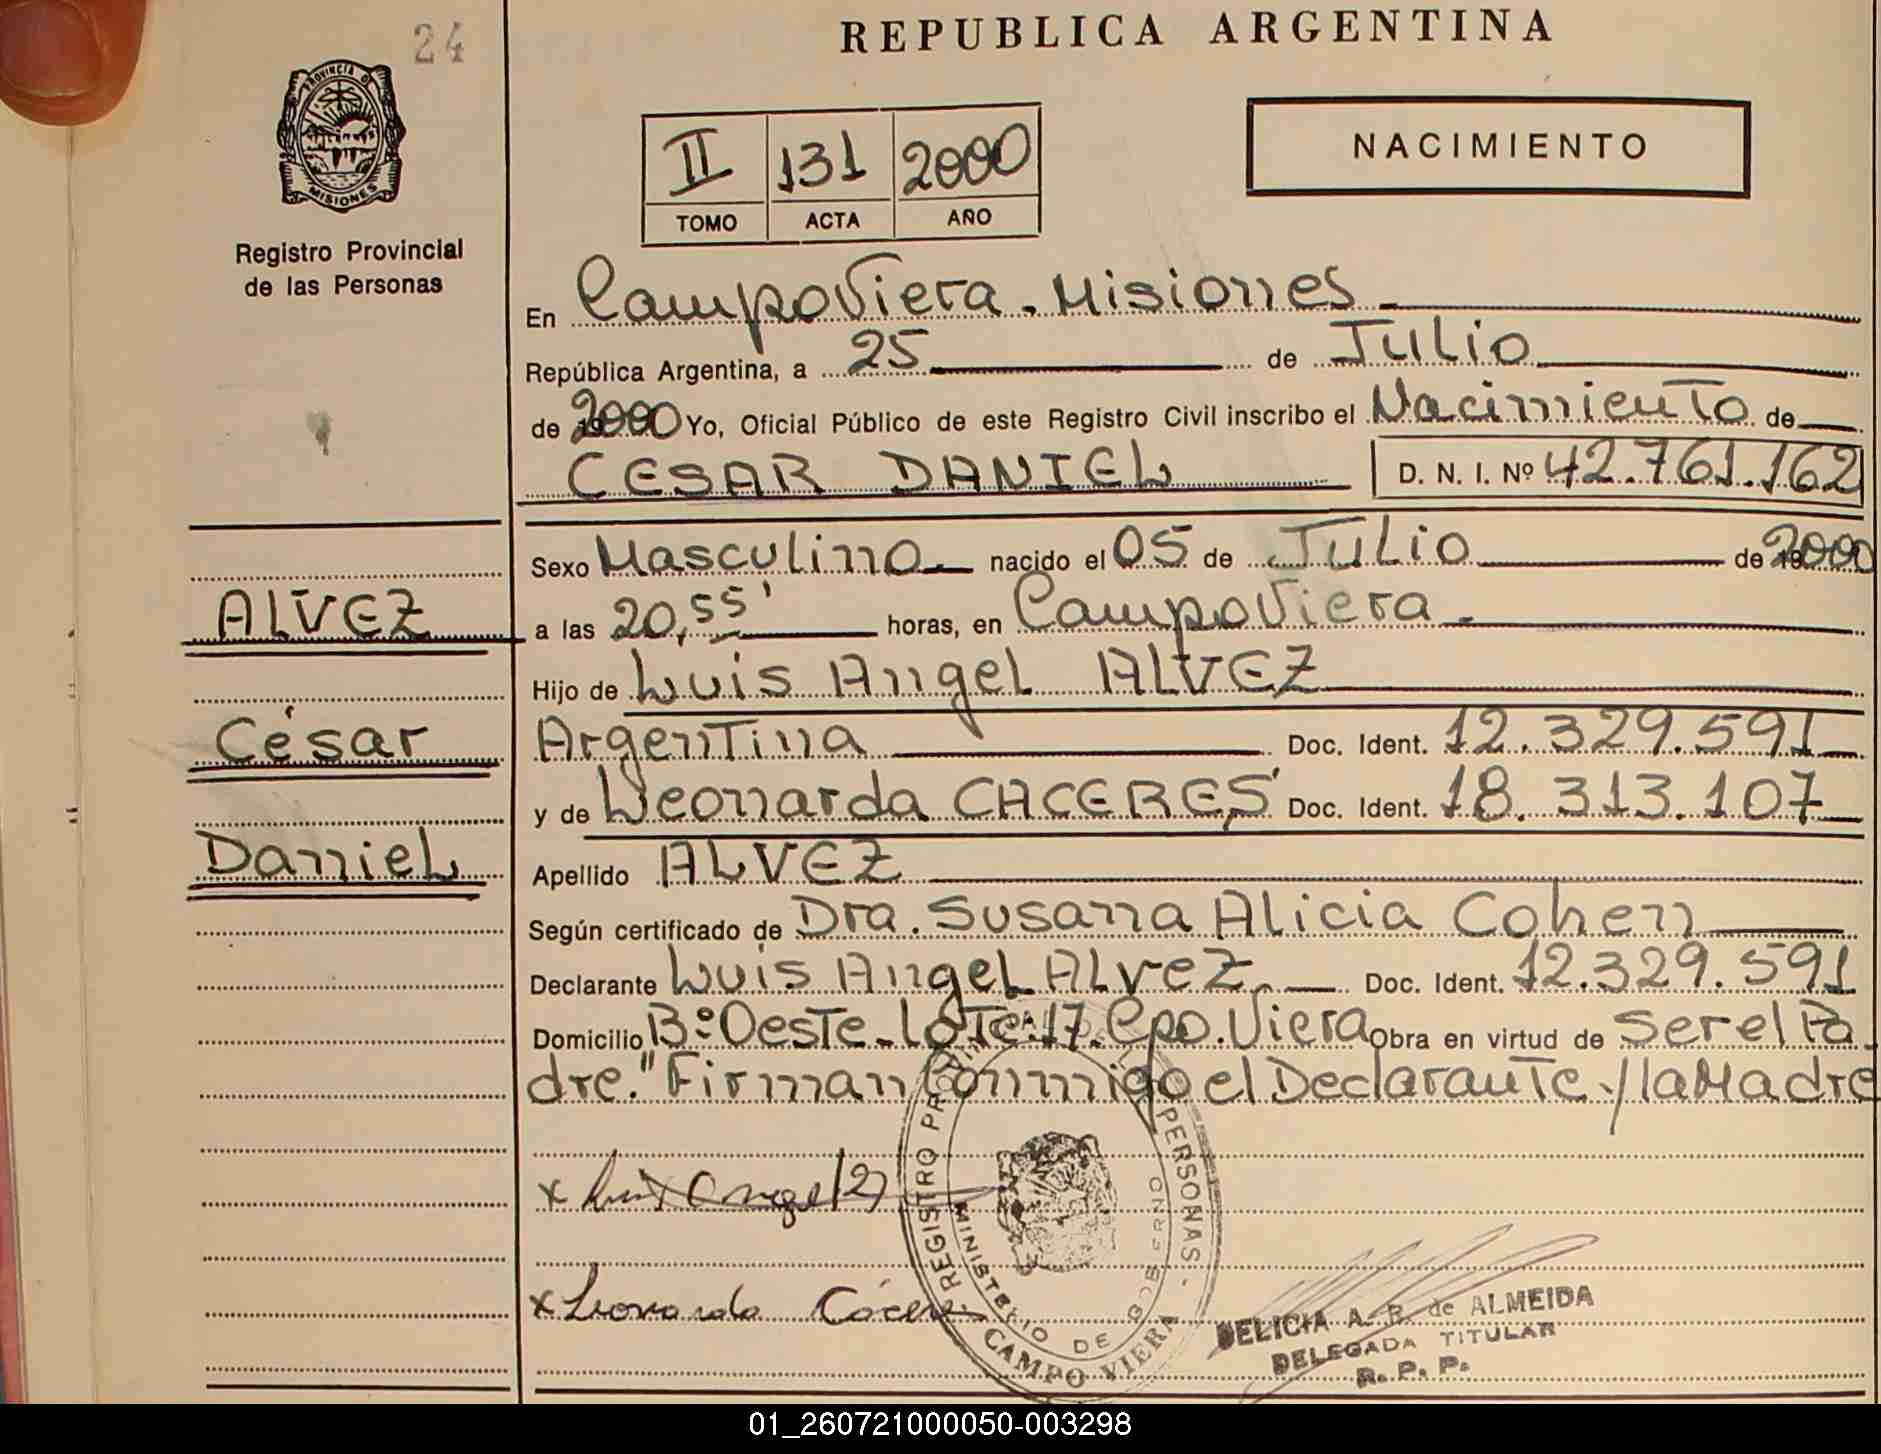 24
REPUBLICA ARGENTINA
PROVINCIA DE
MISIONES
Registro Provincial
de las Personas
II 131 2000
TOMO ACTA AÑO
NACIMIENTO
En CampoViera - Misiones -
República Argentina, a 25 de Julio
de 2000 Yo, Oficial Público de este Registro Civil inscribo el Nacimiento de
CESAR DANIEL D. N. I. Nº 42.761.162
Sexo Masculino nacido el 05 de Julio de 2000
ALVEZ
a las 20,55' horas, en CampoViera -
Hijo de Luis Angel ALVEZ
César
Argentina Doc. Ident. 12.329.591
y de Leonarda CACERES Doc. Ident. 18.313.107
Daniel
Apellido ALVEZ
Según certificado de Dra. Susana Alicia Cohen
Declarante Luis Angel Alvez. Doc. Ident. 12.329.591
Domicilio Bº Oeste - Lote: 17. Cpo. Viera Obra en virtud de ser el Pa-
dre." Firman Conmigo el Declarante y la Madre
x Luis Angel
x Leonarda Cácere
REGISTRO PROVINCIAL DE LAS PERSONAS -
MINISTERIO DE GOBIERNO
CAMPO VIERA
DELICIA A. R. de ALMEIDA
DELEGADA TITULAR
R. P. P.
01_260721000050-003298